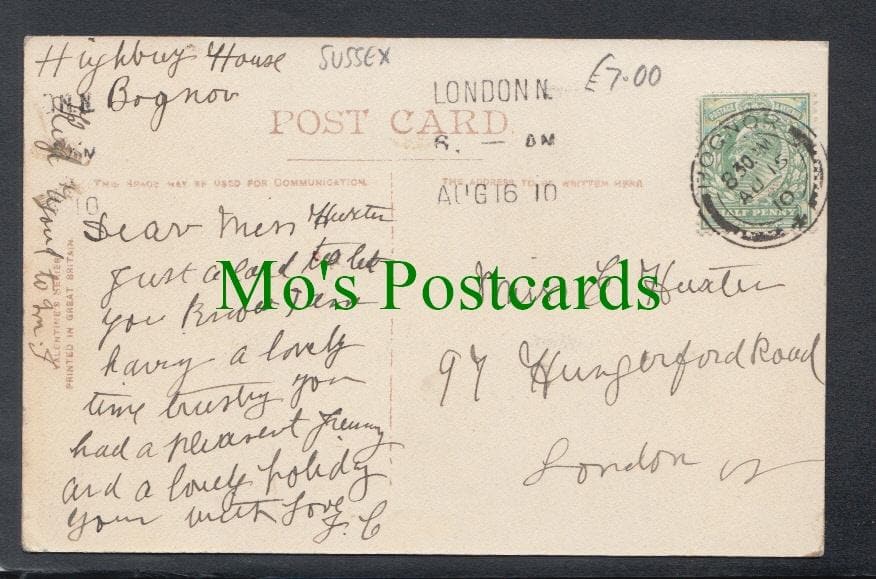 Highbury House
Bognor
SUSSEX
£7.00
LONDON N.
6. — AM
AUG 16 10
POST CARD.
THIS SPACE MAY BE USED FOR COMMUNICATION.
THE ADDRESS TO BE WRITTEN HERE.
BOGNOR
8 30 PM
AU 15
10
HALF PENNY
VALENTINE'S SERIES
PRINTED IN GREAT BRITAIN.
Dear Miss Huxter
Just a card to let
you know I am
having a lovely
time trusting you
had a pleasent Jurney
and a lovely holiday
your with Love
J. C
Miss C Huxter
97 Hungerford Road
London N
Mo's Postcards